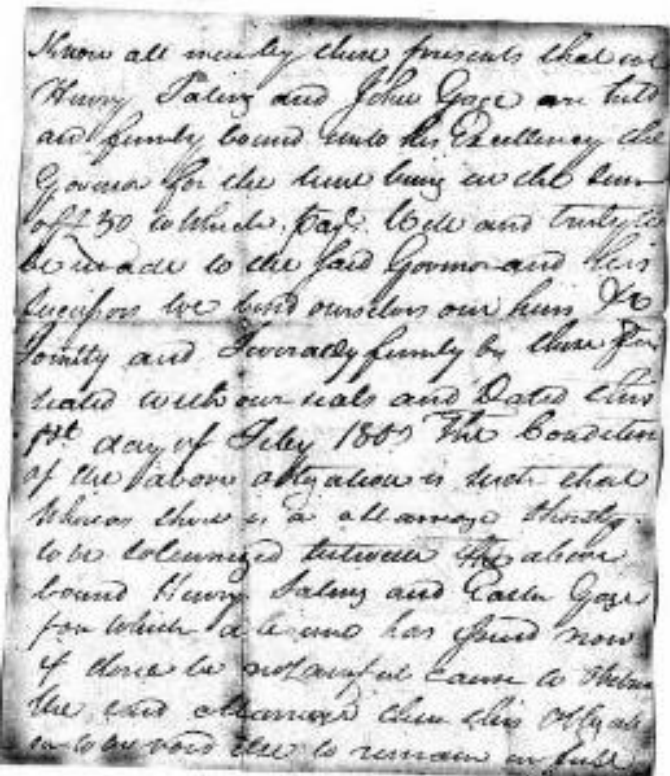 Know all men by these presents that we
Henry Saling and John Gage are held
and firmly bound unto his Excellency the
Govenor for the time being in the sum
off 50 to which pay. Well and truly to
be made to the said Govenor and his
sucessors we bind ourselves our heirs &c
Jointly and Severally firmly by these
sealed with our seals and Dated this
1st day of Feby The Condition
of the above obligation is such that
Whereas there is a Marriage shortly
to be solemnized between the above
bound Henry Saling and Gage
for which a has Issued now
if there be no lawful cause to
the said then this
to be void else to remain in full